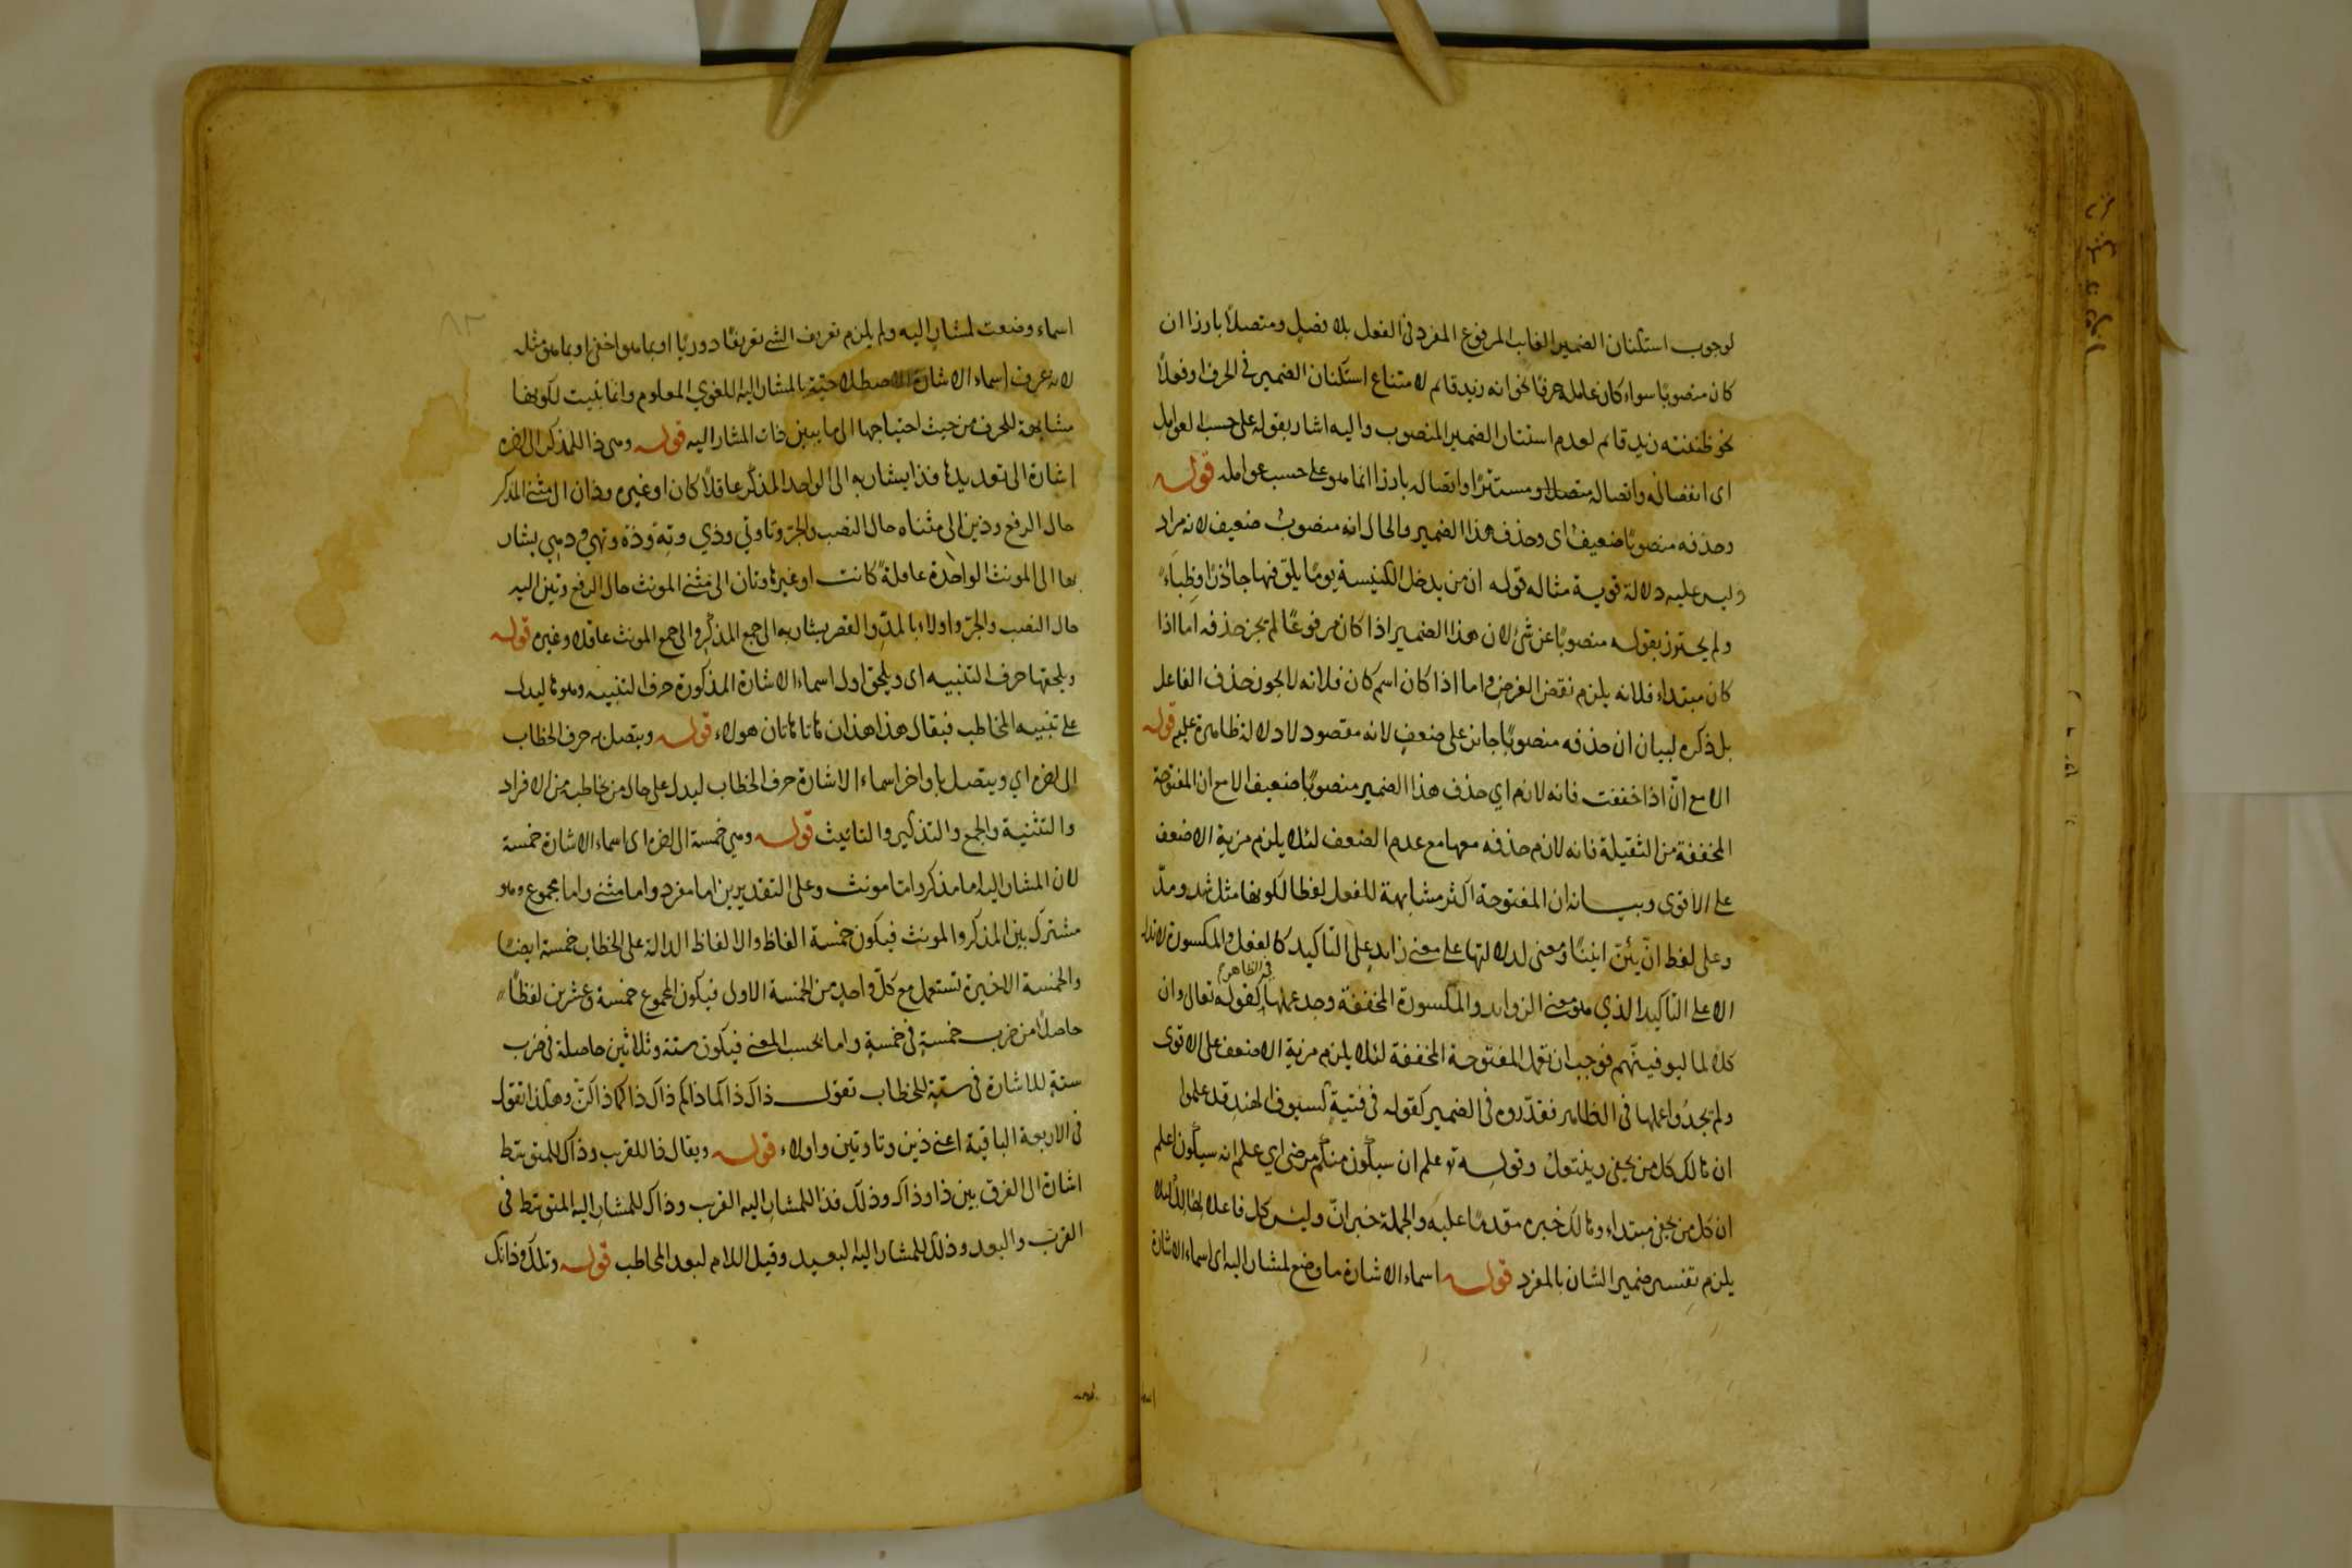 لوجوب استكنان الضمير الغايب المرفوع المفرد فى الفعل بلا فصل ومتصلا بارزا ان
كان منصوبا سواء كان عامله حرفا نحو انه زيد قائم لامتناع استكنان الضمير فى الحرف او فعلا
نحو ظننته زيد قائم لعدم استتار الضمير المنصوب واليه اشار بقوله على حسب العوامل
اى انفصاله واتصاله متصلا ومستترا واتصاله بارزا انما هو على حسب عوامله قوله
وحذفه منصوبا ضعيف اى وحذف هذا الضمير والحال انه منصوب ضعيف لانه مراد
وليس عليه دلالة قوية مثاله قوله ان من يدخل الكنيسة يوما يلق فيها جآذرا وظباء
ولم يحترز بقوله منصوبا عن شئ لان هذا الضمير اذا كان مرفوعا لم يجز حذفه اما اذا
كان مبتداء فلانه يلزم نقض الغرض واما اذا كان اسم كان فلانه لا يجوز حذف الفاعل
بل ذكره لبيان ان حذفه منصوبا جائز على ضعف لانه مقصود لا دلالة ظاهرة عليه قوله
الا مع انّ اذا خففت فانه لازم اي حذف هذا الضمير منصوبا ضعيف الا مع ان المفتوحة
المخففة من الثقيلة فانه لازم حذفه معها مع عدم الضعف لئلا يلزم مزية الاضعف
على الاقوى وبيانه ان المفتوحة اكثر مشابهة للفعل لفظا لكونها مثل شد ومدّ
وعلى لفظ انّ يئنّ انينا ومعنى لدلالتها على معنى زايد على التاكيد كالفعل والمكسورة لا تدل
الا على التاكيد الذي هو معنى الزوايد والمكسورة المخففة وجد عملها فى الظاهر كقوله تعالى وان
كلا لما ليوفينهم فوجب ان تعمل المفتوحة المخففة لئلا يلزم مزية الاضعف على الاقوى
ولم يجدوا عملها فى الظاهر فقدّروه فى الضمير كقوله فى فتية كسيوف الهند قد علموا
ان هالك كل من يحفى وينتعل وقوله تع علم ان سيكون منكم مرضى اي علم انه سيكون اعلم
ان كل من يحفى مبتداء وهالك خبره مقدما عليه والجملة خبر انّ وليس كل فاعلا لهالك لئلا
يلزم تفسير ضمير الشان بالمفرد قوله اسماء الاشارة ما وضع لمشار اليه اى اسماء الاشارة
٨٢
اسماء وضعت لمشار اليه ولم يلزم تعريف الشئ تعريفا دوريا او بما هو اخفى او بما هو مثله
لانه عرف اسماء الاشارة الاصطلاحية بالمشار اليه اللغوي المعلوم وانما بنيت لكونها
مشابهة للحرف من حيث احتياجها الى ما يبين ذات المشار اليه قوله وهى ذا للمذكر الى اخره
اشارة الى تعديدها فذا يشار به الى الواحد المذكر عاقلا كان او غيره وذان الى مثنى المذكر
حال الرفع وذين الى مثناه حال النصب والجر وتا وتي وذي وته وذه وتهي وذهي يشار
بها الى المونث الواحدة عاقلة كانت او غيرها وتان الى مثنى المونث حال الرفع وتين اليه
حال النصب والجر واولاء بالمد والقصر يشار به الى جمع المذكر والى جمع المونث عاقلا وغيره قوله
ويلحقها حرف التنبيه اى ويلحق اول اسماء الاشارة المذكورة حرف التنبيه وهو ها ليدل
على تنبيه المخاطب فيقال هذا هذان هاتا هاتان هولاء قوله ويتصل به حرف الخطاب
الى اخره اي ويتصل باواخر اسماء الاشارة حرف الخطاب ليدل على حال من يخاطب من الافراد
والتثنية والجمع والتذكير والتانيث قوله وهي خمسة الى اخره اى اسماء الاشارة خمسة
لان المشار اليه اما مذكر واما مونث وعلى التقديرين اما مفرد واما مثنى واما مجموع وهو
مشترك بين المذكر والمونث فيكون خمسة الفاظ والالفاظ الدالة على الخطاب خمسة ايضا
والخمسة الاخيرة تستعمل مع كل واحد من الخمسة الاول فيكون المجموع خمسة وعشرين لفظا
حاصلا من ضرب خمسة فى خمسة واما بحسب المعنى فيكون ستة وثلاثين حاصلة فى ضرب
ستة للاشارة فى ستة للخطاب تقول ذاك ذاكما ذاكم ذاك ذاكما ذاكنّ وهكذا تقول
فى الاربعة الباقية اعنى ذين وتا وتين واولاء قوله ويقال ذا للقريب وذاك للمتوسط
اشارة الى الفرق بين ذا وذاك وذلك فذا للمشار اليه القريب وذاك للمشار اليه المتوسط فى
القرب والبعد وذلك للمشار اليه البعيد وقيل اللام لبعد المخاطب قوله وتلك وذانك